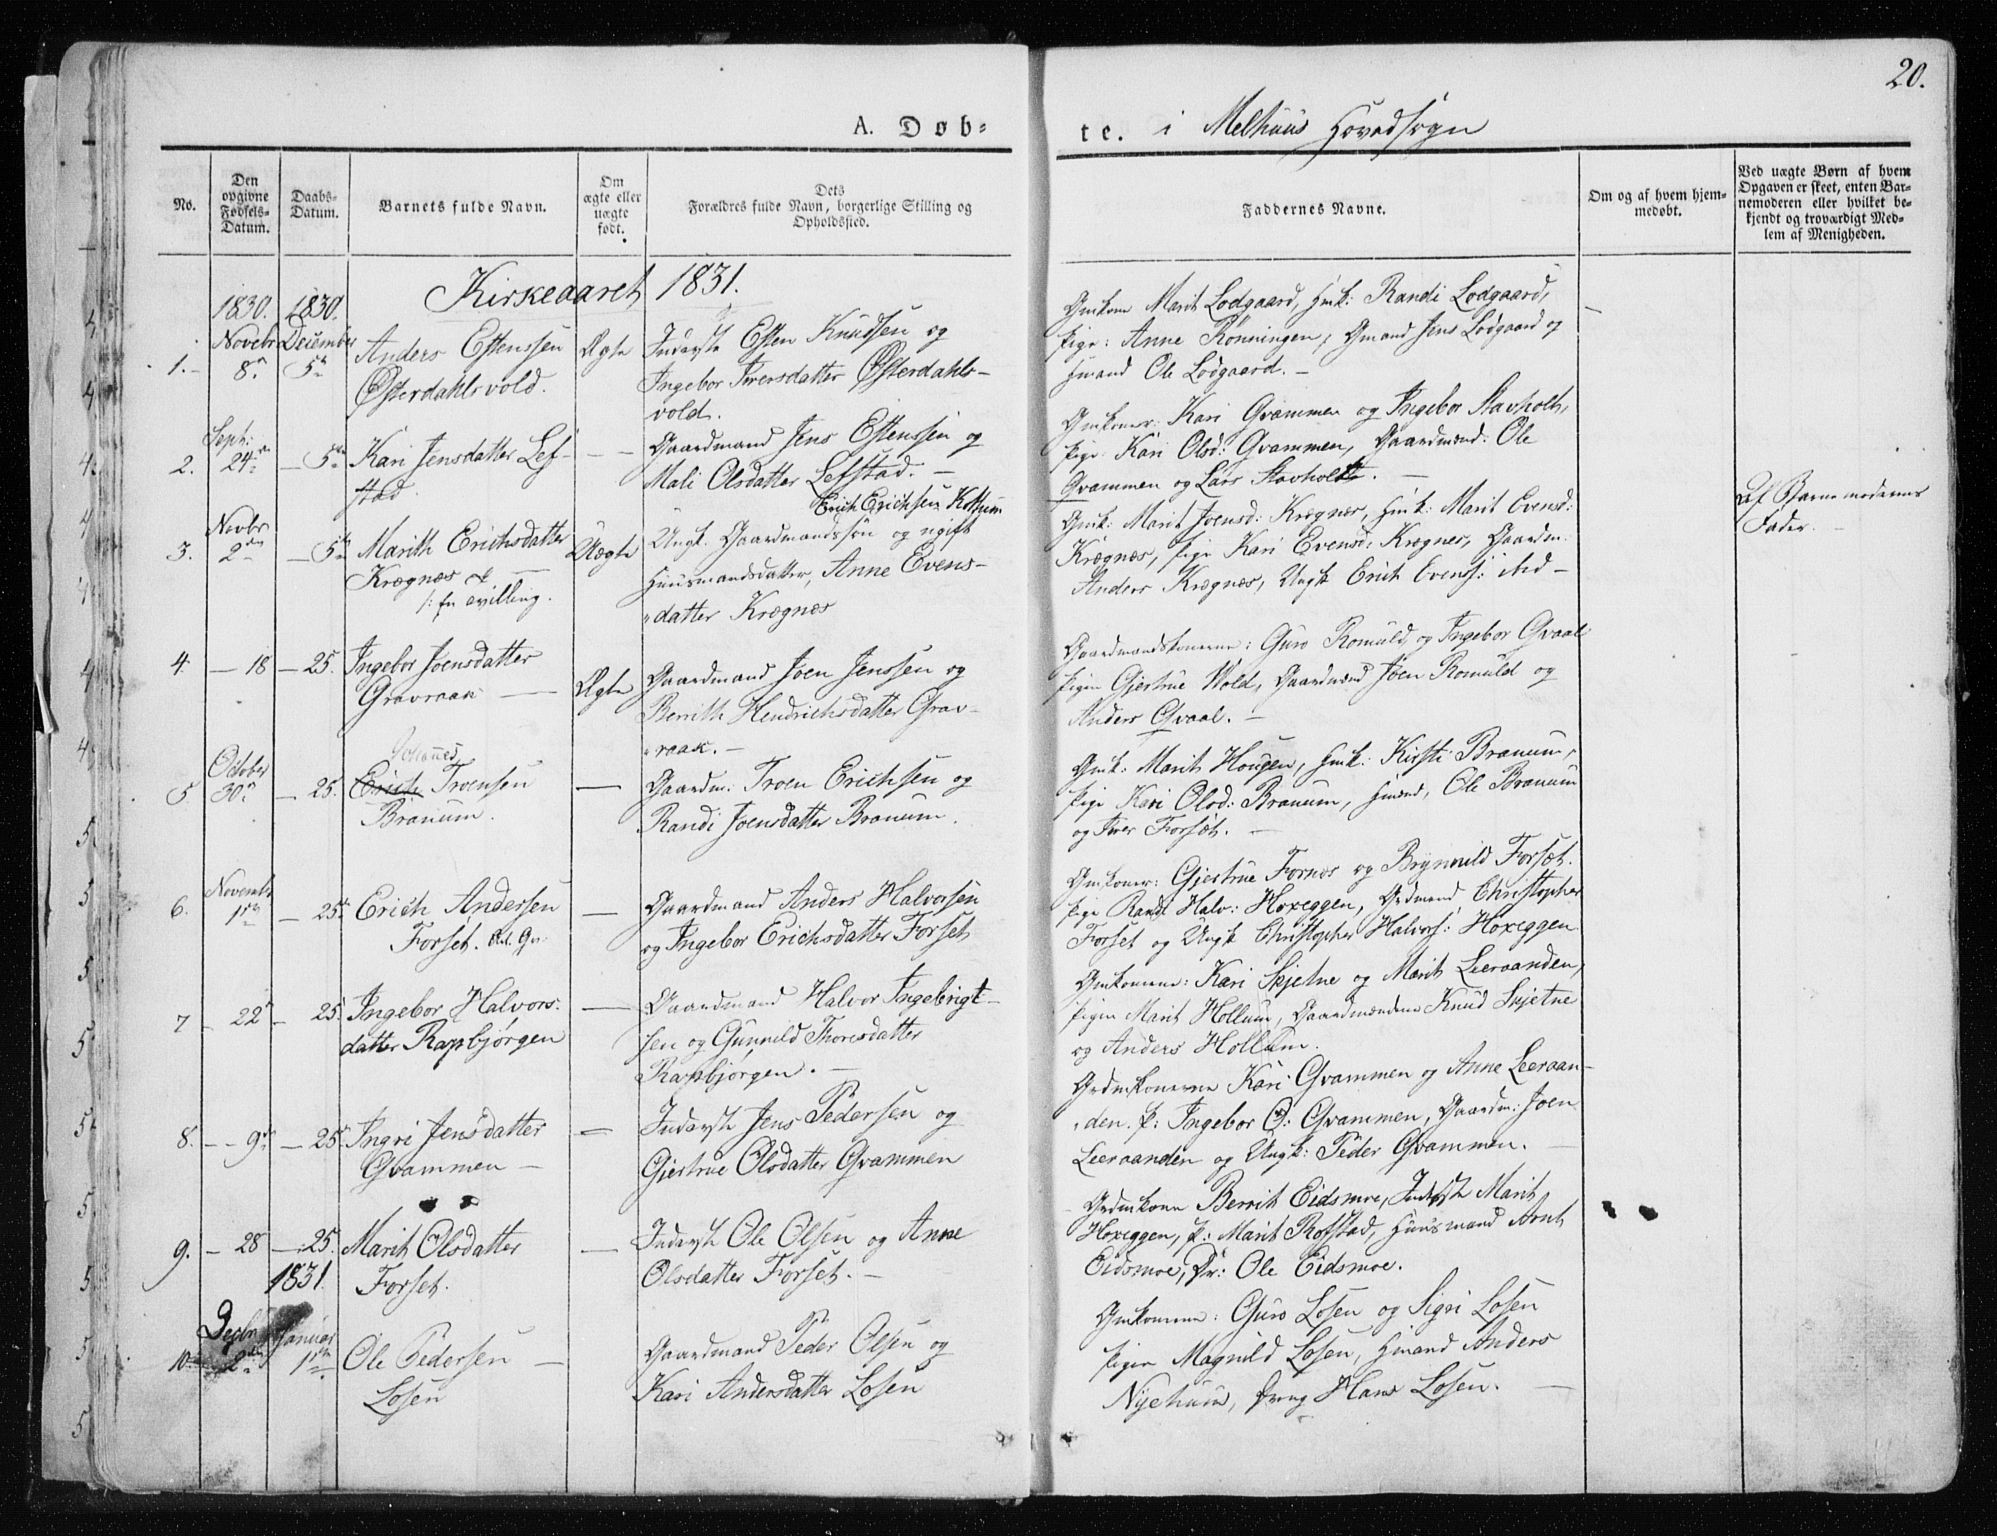 20.
A. Døb-
te. i Melhuus Hovedsogn
No.
Den
opgivne
Fødsels-
Datum.
Daabs-
Datum.
Barnets fulde Navn.
Om
ægte eller
uægte
født.
Dets
Forældres fulde Navn, borgerlige Stilling og
Opholdssted.
Faddernes Navne.
Om og af hvem hjem-
medøbt.
Ved uægte Børn af hvem
Opgaven er skeet, enten Bar-
nemoderen eller hvilket be-
kjendt og troværdigt Med-
lem af Menigheden.
Kirkeaaret 1831.
1830. 1830.
Novbr December
1. 8de 5te
Anders Estenssen
Østerdahlsvold.
Ægte
Inderst Esten Knudsen og
Ingebor Iversdatter Østerdahls-
vold.
Gmkone Marit Lodgaard, Hmk: Randi Lodgaard,
Pige: Anne Rønningen, Gmand Jens Lodgaard og
Hmand Ole Lodgaard. -
2. Sept: 24de - 5te
Kari Jensdatter Lef-
stad.
Gaardmand Jens Estenssen og
Mali Olsdatter Lefstad. -
Gmkoner: Kari Gvammen og Ingebor Stavholt,
Pige Kari Olsd: Gvammen, Gaardmænd: Ole
Gvammen og Lars Stavholt. -
3. Novbr 2den - 5te
Marith Erichsdatter
Krægnæs
/: En tvilling.
Uægte
Erich Erichsen Kottum
Ungk. Gaardmandssøn og ugift
Huusmandsdatter, Anne Evens-
datter Krægnæs
Gmk: Marit Joensd: Krægnæs, Hmk: Marit Evensd:
Krægnæs, Pige Kari Evensd: Krægnes, Gaardm.
Anders Krægnæs, Ungk Erich Evens: ibid -
Af Barnemoderens
Fader. -
4. - 18 - 25.
Ingebor Joensdatter
Gravraak
Ægte
Gaardmand Joen Jenssen og
Berrith Hendrichsdatter Grav-
raak. -
Gaardmandskonerne: Guro Romuld og Ingebor Gvaal
Pigen Gjertrue Wold, Gaardmænd Joen Romuld og
Anders Gvaal. -
5 October 30te - 25.
Johannes
Erich Troensen
Branum.
Gaardm: Troen Erichsen og
Randi Joensdatter Branum.
Gmk: Marit Hougen, Hmk: Kirsti Branum,
Pige Kari Olsd: Branum, Hmænd, Ole Branum
og Iver Forsæt. -
6. Novembr 1ste - 25de
Erich Andersen
Forset.
Gaardmand Anders Halvorsen
og Ingebor Erichsdatter Forset
Gmkoner: Gjertrue Fornes og Brynnild Forsæt.
Pige Randi Halv: Hoxeggen, Grdmand Christopher
Forset og Ungk Christopher Halvors: Hoxeggen
7 - 22de - 25.
Ingebor Halvors-
datter Rapbjørgen
Gaardmand Halvor Ingebrigt-
sen og Gunnild Thoresdatter
Rapbjørgen. -
Gmkonerne: Kari Skjetne og Marit Leeraanden,
Pigen Marit Hollum, Gaardmændene Knud Skjetne
og Anders Hollum.
8. - - 9de - 25.
Ingri Jensdatter
Gvammen -
Inderst Jens Pedersen og
Gjertrue Olsdatter Gvammen
Grdmkonerne Kari Gvammen og Anne Leeraan-
den. P: Ingebor O: Gvammen, Gaardm: Joen
Leeraanden og Ungk: Peder Gvammen. -
9. - 28 - 25.
Marit Olsdatter
Forset.
Inderst Ole Olsen og Anne
Olsdatter Forset. -
Grdmkone Berrit Eidsmoe, Inderst Marit
Hoxeggen, P: Marit Rofstad, Huusmand Arnt
Eidsmoe, Dr: Ole Eidsmoe.
1831.
10 Decbr 2den Januar 1ste
Ole Pedersen
Losen
Gaardmand Peder Olsen og
Kari Andersdatter Losen
Gmkonerne: Guro Losen og Sigri Losen
Pigen Magnild Losen, Hmand Anders
Nyehuus, Dreng Hans Losen. -